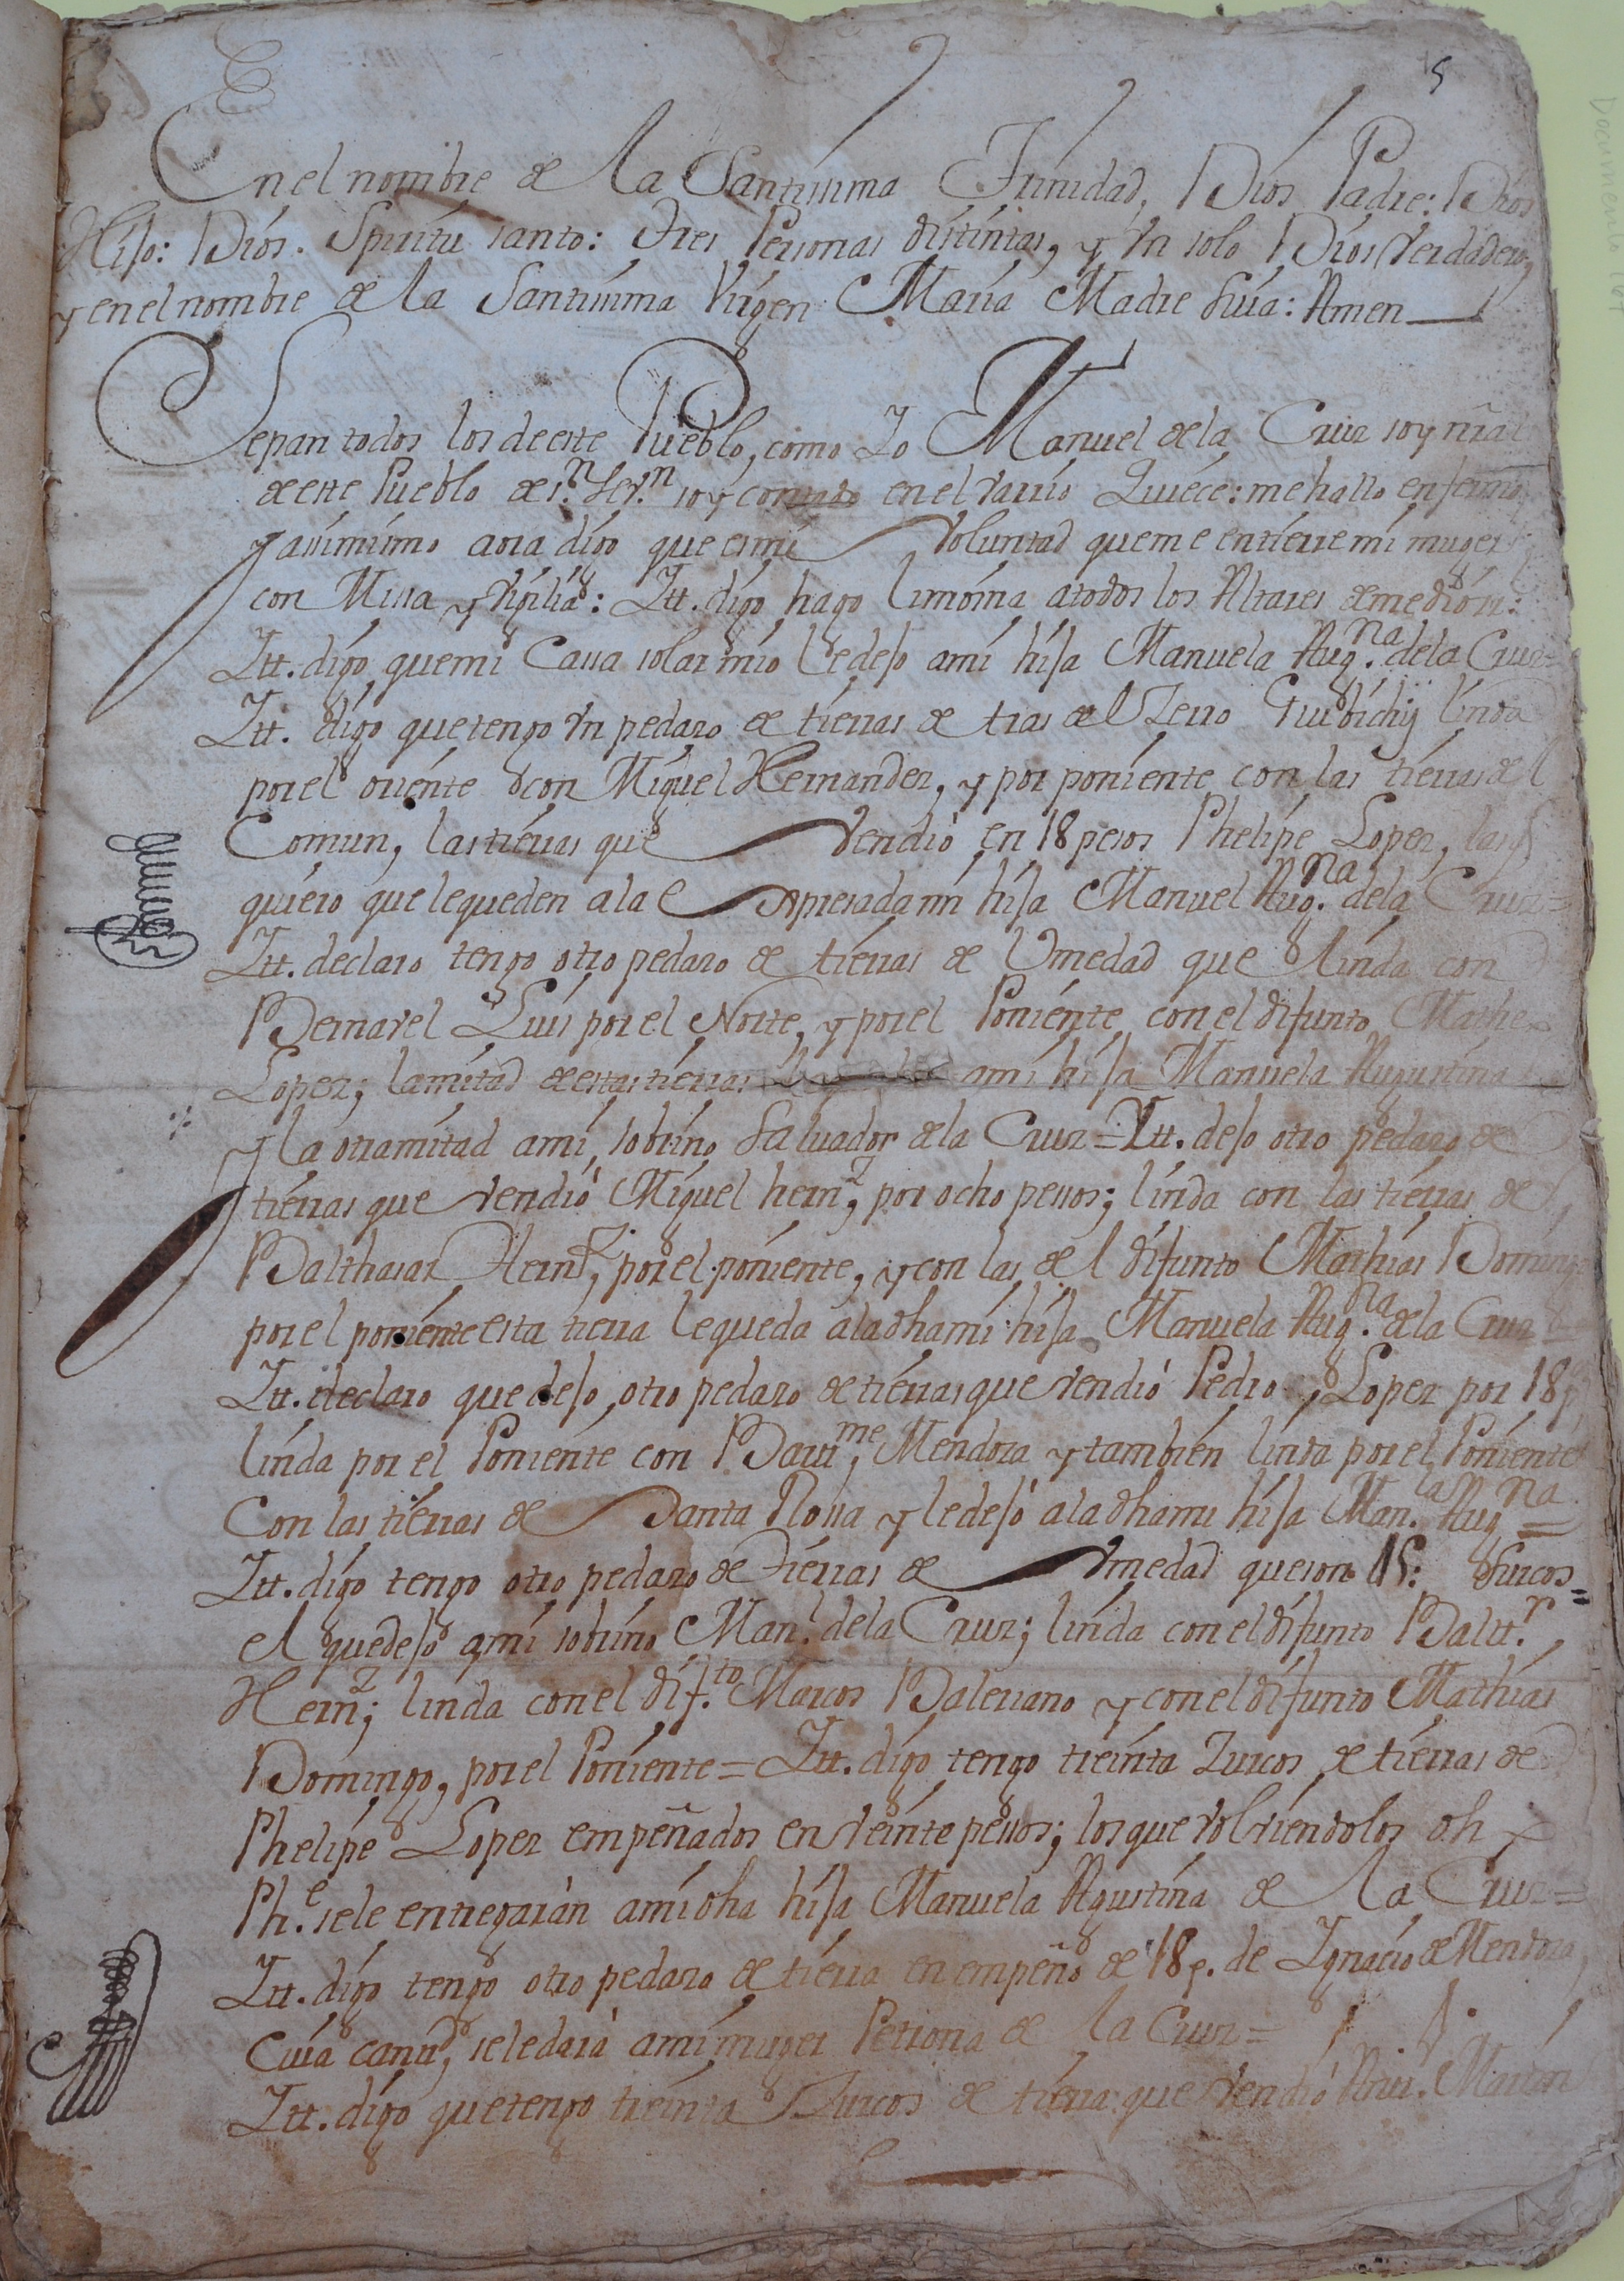 5
En el nombre de la Santissima Trinidad, Dios Padre: Dios
Hijo: Dios. Spiritu santo: Tres Personas distintas, y Vn solo Dios Verdadero,
y en el nombre de la Santissima Virgen Maria Madre suia: Amen
Sepan todos los de este Pueblo, como Yo Manuel de la Cruz soy nrãl
de este Pueblo de s.n Ser.n soy contado en el varrio Quiéce: me hallo enfermo
y assimismo aora digo que es mi voluntad que me entierre mi muger
con Missa y vigilia: Itt. digo hago limosna a todos los Altares de medio rr:
Itt. digo que mi Cassa solar mio le dejo a mi hija Manuela Aug.na de la Cruz=
Itt. digo que tengo Vn pedazo de tierras de tras del Zerro linda
por el oriente con Miguel Hernandez, y por poniente con las tierras del
Comun, las tierras que vendió en 18 pesos Phelipe Lopez, las
quiero que le queden a la Expresada mi hija Manuel Aug.na de la Cruz=
Itt. declaro tengo otro pedazo de tierras de Vmedad que linda con
Bernavel Luis por el Norte, y por el Poniente con el difunto Matheo
Lopez; la mitad de estas tierras a mi hija Manuela Augustina
y la otra mitad a mi sobrino Saluador de la Cruz= Itt. dejo otro pedazo de
tierras que vendió Miguel hernz, por ocho pessos; linda con las tierras de
Balthasar Hernz, por el poniente, y con las del difunto Mathias Domingo
por el poniente esta tierra le queda a la dha mi hija Manuela Aug.na de la Cruz=
Itt. declaro que dejo otro pedazo de tierras que vendió Pedro Lopez por 18 p
linda por el Poniente con Barme, Mendoza y tambien linda por el Poniente
Con las tierras de Santa Rossa y le dejo a la dha mi hija Man.la Aug.na=
Itt. digo tengo otro pedazo de tierras de Vmedad que son 15: Surcos=
el que dejo a mi sobrino Man.l de la Cruz; linda con el difunto Baltt.r
Hernz; linda con el dif.to Marcos Baleriano y con el difunto Mathias
Domingo, por el Poniente= Itt. digo tengo treinta Zurcos de tierras de
Phelipe Lopez empeñados en veinte pessos; los que volviendolos dh
Ph.e se le entregarán a mi dha hija Manuela Agustina de la Cruz=
Itt. digo tengo otro pedazo de tierra en empeño de 18 p. de Ygnacio de Mendoza,
Cuia cantd, se le dará a mi muger Petrona de la Cruz=
Itt. digo que tengo treinta Zurcos de tierra que vendió Martin